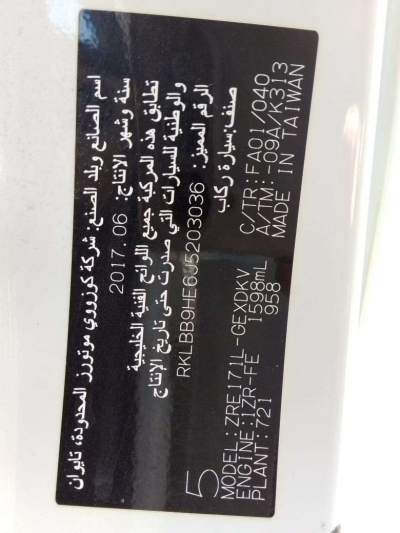 اسم الصانع وبلد الصنع: شركة كوزرووي موتورز المحدودة، تايوان
سنة وشهر الإنتاج: 2017.06
تطابق هذه المركبة جميع اللوائح الفنية الخليجية
والوطنية للسيارات التي صدرت حتى تاريخ الإنتاج
الرقم المميز: RKLBB9HE6J5203036
صنف: سيارة ركاب
5
MODEL: ZRE171L-GEXDKV C/TR: FA01/040
ENGINE: 1ZR-FE 1598mL A/TM: -09A/K313
PLANT: 721 958 MADE IN TAIWAN